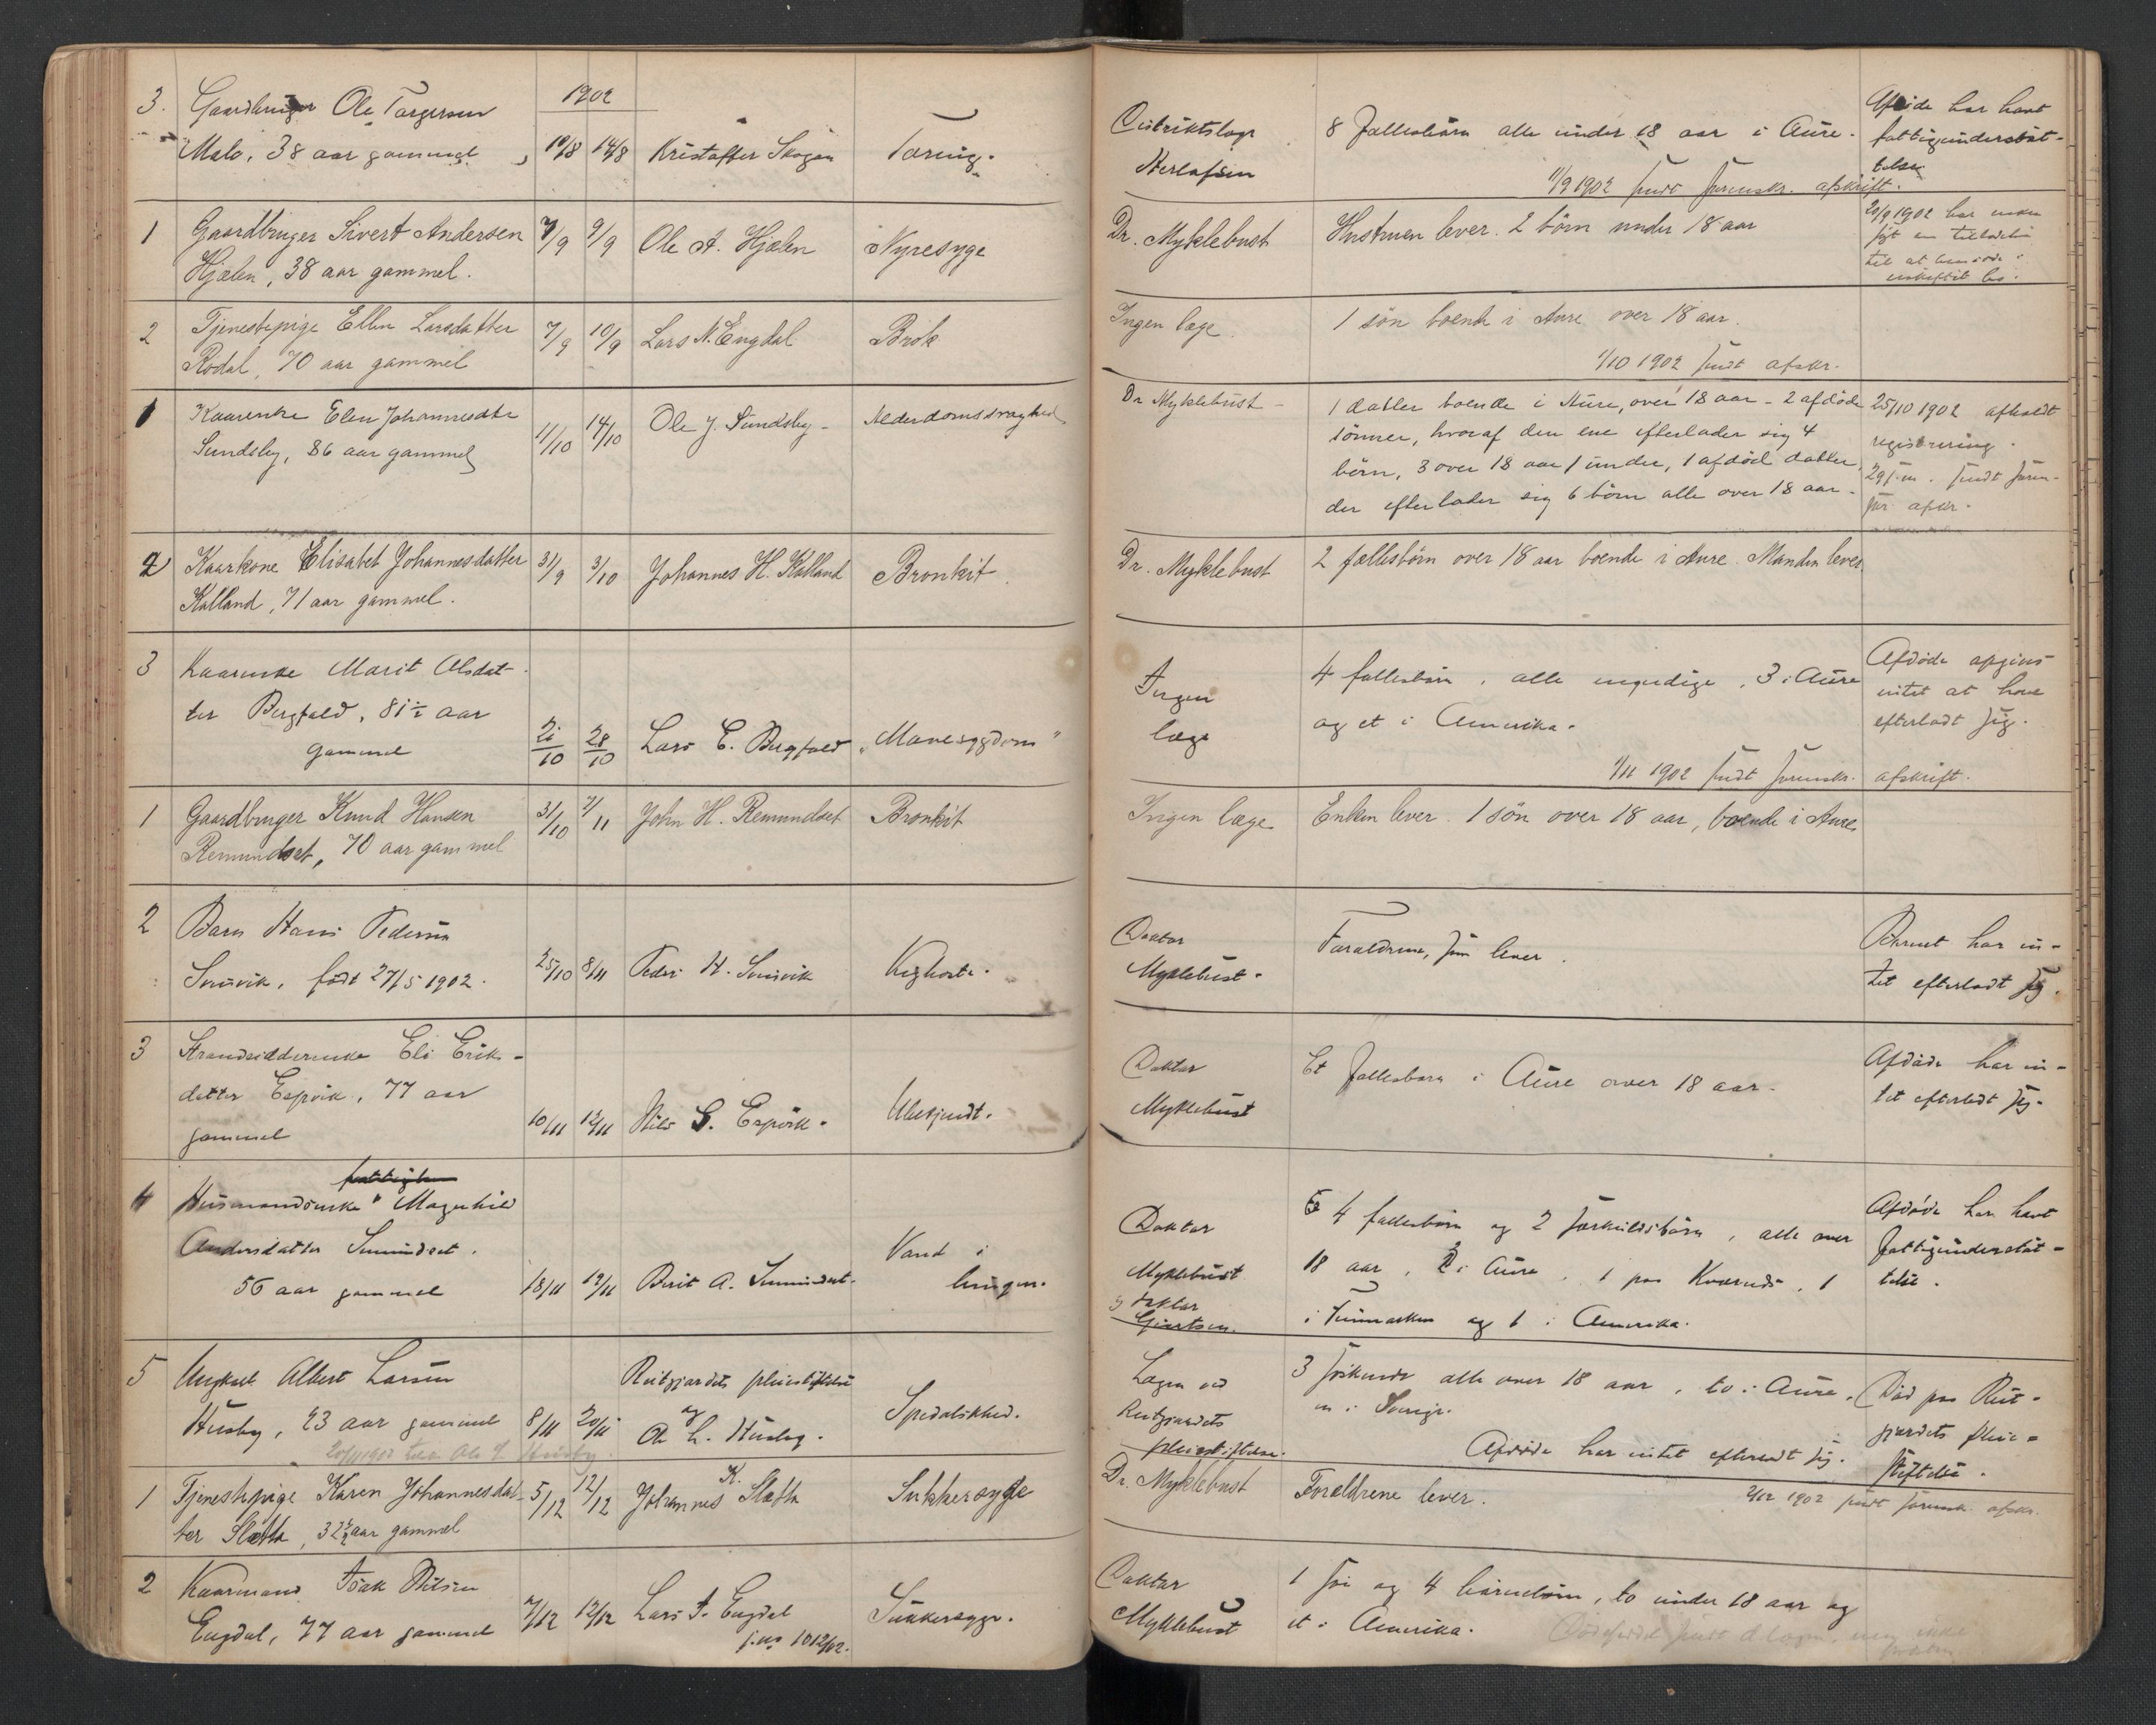 1902
3. Gaardbruger Ole Torgersen
Malo, 38 aar gammel, 10/8 14/8 Kristoffer Skogan Tæring.
1 Gaardbruger Sivert Andersen 7/9 9/9 Ole A. Hjælen Nyresyge
Hjælen, 38 aar gammel.
2 Tjenestepige Ellen Larsdatter 7/9 10/9 Lars N. Engdal Brok
Rodal, 70 aar gammel
1 Kaarenke Elen Johannesdtr
Sundsby, 86 aar gammel 11/10 14/10 Ole J. Sundsby Alderdomssvaghed
2 Kaarkone Elisabet Johannesdatter 31/9 3/10 Johannes H. Kalland Bronkit.
Kalland, 71 aar gammel.
3 Kaarenke Marit Olsdat-
ter Bergfald, 81½ aar
gammel 21/10 28/10 Lars E. Bergfald „Mavesygdom"
1 Gaardbruger Knud Hansen 31/10 7/11 John H. Remundset Bronkit
Remundset, 70 aar gammel
2 Barn Hans Pedersen
Smevik, født 27/5 1902. 25/10 8/11 Peder H. Smevik Kighoste.
3 Strandsidderenke Eli Erik-
datter Espvik, 77 aar
gammel 10/11 12/11 Nils G. Espvik. Ubekjendt.
4 Husmandsenke Magnhild
Andersdatter Sumundset.
56 aar gammel 18/11 19/11 Berit A. Sumundset. Vand i
lungen.
5 Ungkarl Albert Larsen Reitgjærdets pleiestiftelse
Husby, 23 aar gammel 8/11 20/11 og Ole L. Husby. Spedalskhed.
1 Tjenestepige Karen Johannesdat- 5/12 12/12 Johannes K. Sletta Sukkersyge
ter Sletta, 32½ aar gammel
2 Kaarmand Isak Nilsen
Engdal, 77 aar gammel 7/12 12/12 Lars I. Engdal Sukkersyge.
j.no 1012/02.
Distriktslæge 8 fællesbørn alle under 18 aar i Aure. Afdøde har havt
Herlofsen fattigunderstøt-
telse
11/9 1902 sendt formsk. afskrift.
Dr. Myklebust Hustruen lever. 2 børn under 18 aar
20/9 1902 har enken
Ingen læge. 1 søn boende i Aure over 18 aar.
1/10 1902 sendt afskr.
Dr Myklebust 1 datter boende i Aure, over 18 aar - 2 afdøde 25/10 1902 afholdt
sønner, hvoraf den ene efterlader sig 4 registrering.
børn, 3 over 18 aar 1 under, 1 afdød datter,
der efterlader sig 6 børn alle over 18 aar.
Dr. Myklebust 2 fællesbørn over 18 aar boende i Aure. Manden lever.
Ingen 4 fællesbørn, alle myndige, 3 i Aure Afdøde opgives
læge og et i Amerika. intet at have
efterladt sig.
1/11 1902 sendt formsk. afskrift.
Ingen læge Enken lever. 1 søn over 18 aar, boende i Aure
Doktor Forældrene, som lever. Barnet har in-
Myklebust. tet efterladt sig.
Doktor Et fællesbarn i Aure over 18 aar. Afdøde har in-
Myklebust tet efterladt sig.
Doktor 4 fællesbørn og 2 særkuldsbørn, alle over Afdøde har havt
Myklebust 18 aar, 3 i Aure, 1 paa Kvernæs, 1 fattigunderstøt-
Doktor i Finmarken og 1 i Amerika. telse.
Giertsen.
Lægen ved 3 søskende alle over 18 aar, to i Aure, Død paa Reit-
Reitgjærdets en i Sverige. gjærdets pleie-
pleiestiftelse. Afdøde har intet efterladt sig. stiftelse.
2/12 1902 sendt formsk. afskr.
Dr. Myklebust Forældrene lever.
Doktor 1 søn og 4 børnebørn, to under 18 aar og
Myklebust et i Amerika.